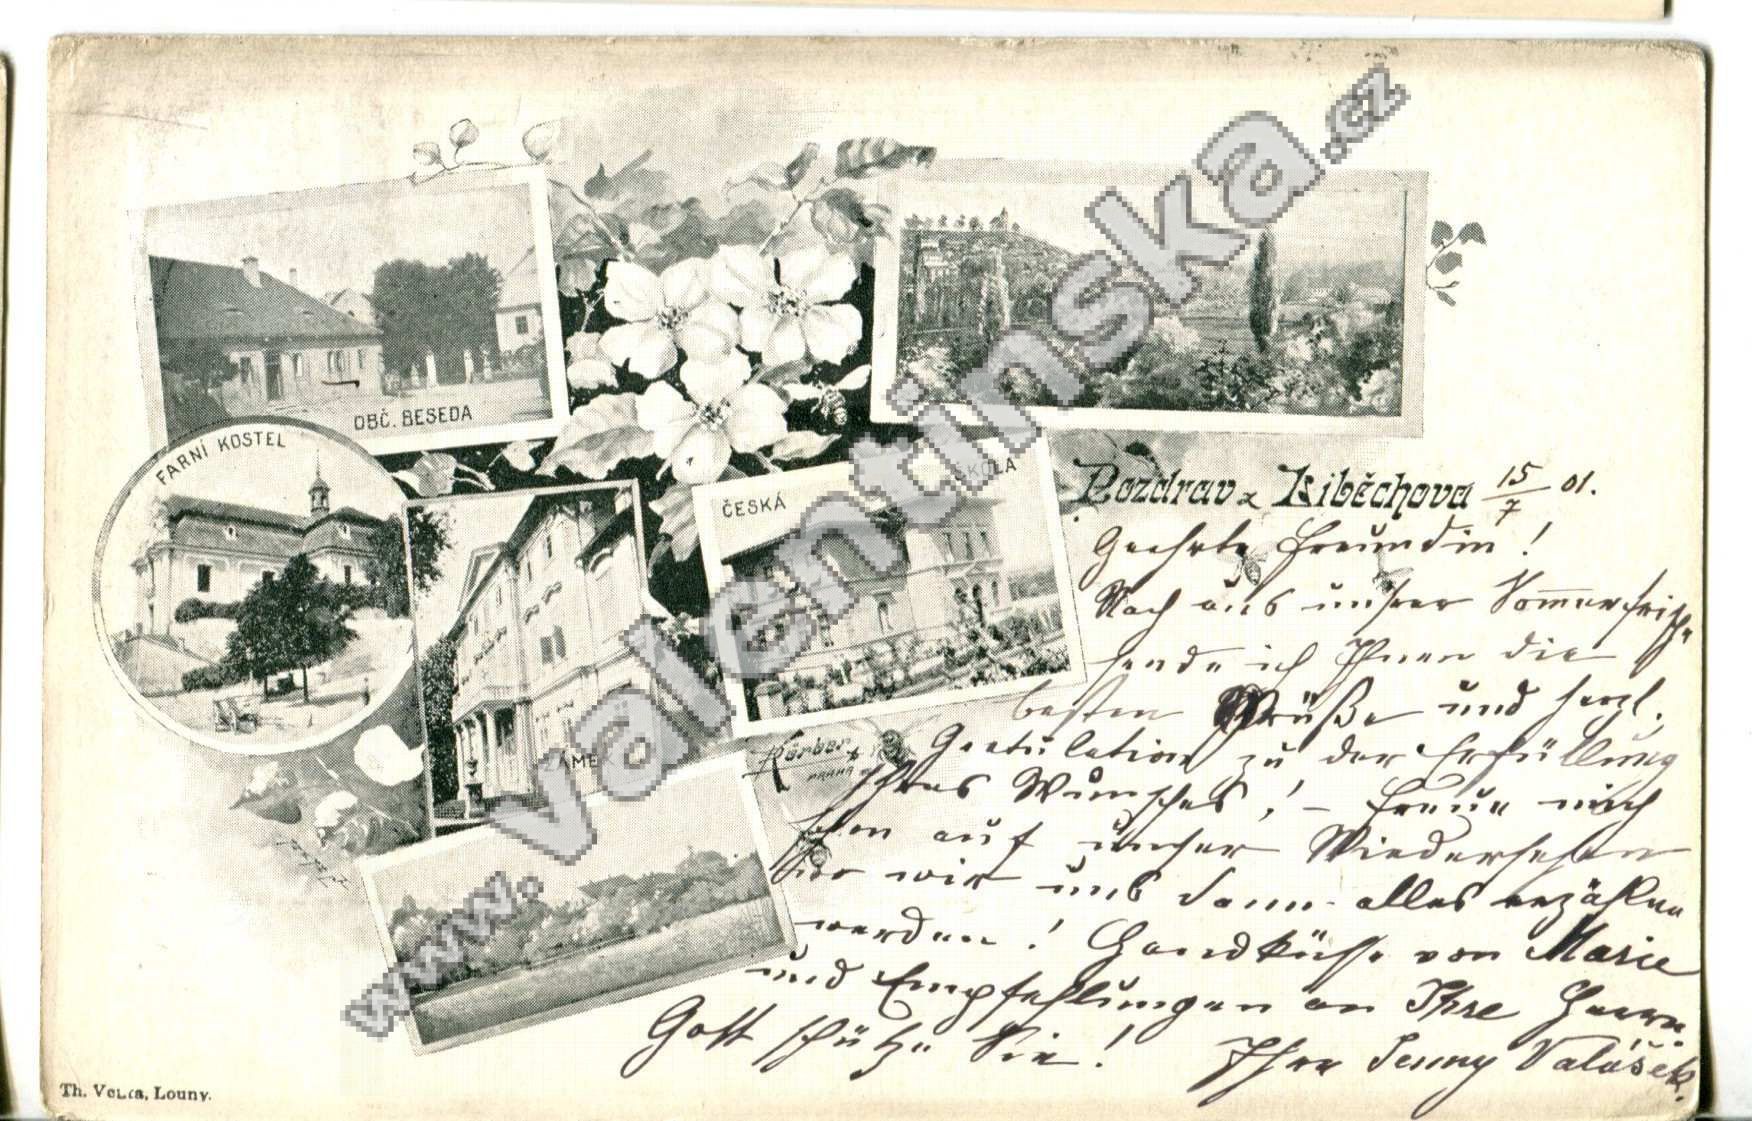 OBČ. BESEDA
FARNÍ KOSTEL
ČESKÁ ŠKOLA
ZÁMEK
Pozdrav z Liběchova 15/7 01.
Geehrte Freundin!
Auch aus unserer Sommerfrische
sende ich Ihnen die
besten Grüße und herzl.
Gratulation zu der Erfüllung
Ihres Wunsches! – Freue mich
schon auf unser Wiedersehen
wo wir uns dann alles erzählen
werden! Handküsse von Marie
und Empfehlungen an Ihre Herrn
Gott schütze Sie! Ihre Jenny Valášek.
Körber
PRAHA
Th. Volka, Louny.
www.valentinska.cz